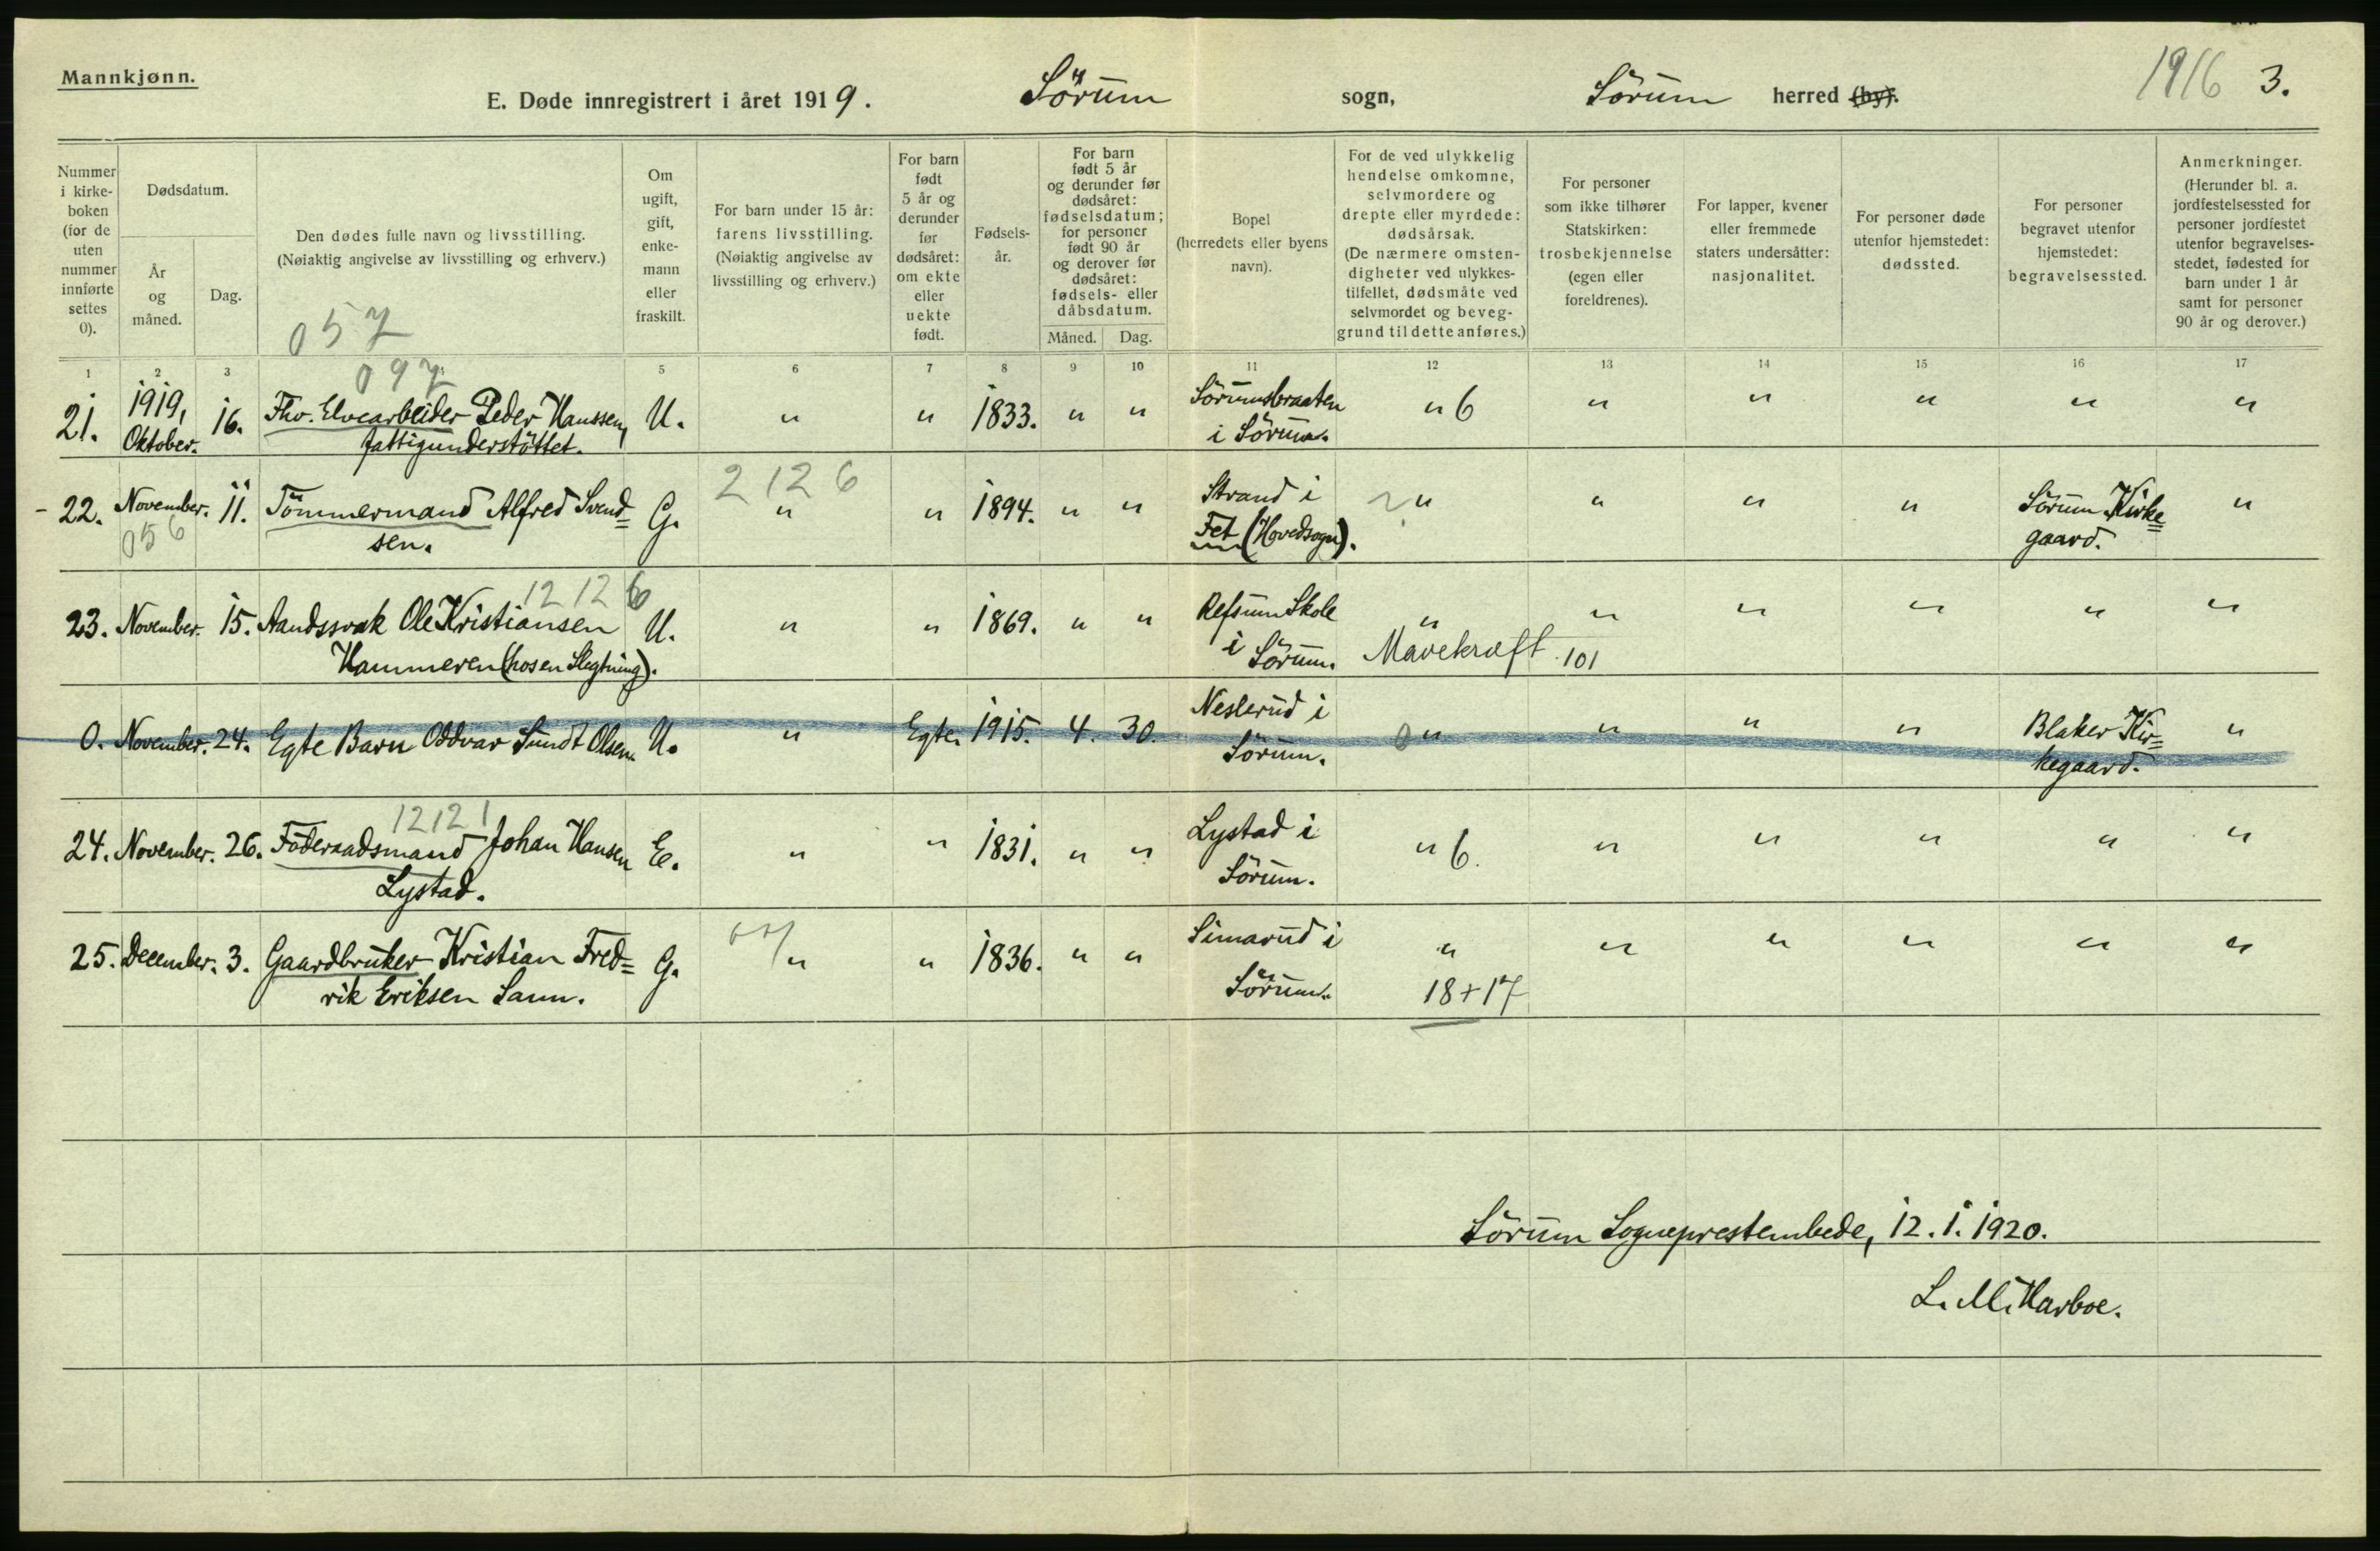 Mannkjønn.
E. Døde innregistrert i året 1919. Sörum sogn, Sörum herred (by). 1916 3.
Nummer i kirkeboken (for de uten nummer innførte settes 0).
Dødsdatum.
År og måned.
Dag.
Den dødes fulle navn og livsstilling.
(Nøiaktig angivelse av livsstilling og erhverv.)
Om ugift, gift, enkemann eller fraskilt.
For barn under 15 år: farens livsstilling. (Nøiaktig angivelse av livsstilling og erhverv.)
For barn født 5 år og derunder før dødsåret: om ekte eller uekte født.
Fødselsår.
For barn født 5 år og derunder før dødsåret: fødselsdatum; for personer født 90 år og derover før dødsåret: fødsels- eller dåbsdatum.
Måned. Dag.
Bopel (herredets eller byens navn).
For de ved ulykkelig hendelse omkomne, selvmordere og drepte eller myrdede: dødsårsak. (De nærmere omstendigheter ved ulykkestilfellet, dødsmåte ved selvmordet og beveggrund til dette anføres.)
For personer som ikke tilhører Statskirken: trosbekjennelse (egen eller foreldrenes).
For lapper, kvener eller fremmede staters undersåtter: nasjonalitet.
For personer døde utenfor hjemstedet: dødssted.
For personer begravet utenfor hjemstedet: begravelsessted.
Anmerkninger. (Herunder bl. a. jordfestelsessted for personer jordfestet utenfor begravelsesstedet, fødested for barn under 1 år samt for personer 90 år og derover.)
057
1 2 3 5 6 7 8 9 10 11 12 13 14 15 16 17
097
21. 1919, Oktober. 16. Fhv. Elvearbeider Peder Hanssen, U. " " 1833. " " Sörumsbraaten " 6 " " " " "
fattigunderstöttet. i Sörum.
2126
22. November. 11. Tömmermand Alfred Svend= G. " " 1894. " " Strand i " " " " Sörum Kirke= "
056 sen. Fet (Hovedsogn). gaard.
12126
23. November. 15. Aandssvak Ole Kristiansen U. " " 1869. " " Refsum Skole " " " " " "
Hammeren (hos en Slegtning). i Sörum. Mavekræft 101
0. November. 24. Egte Barn Oddvar Sundt Olsen. U. " Egte. 1915. 4. 30. Neslerud i 0 " " " " Blaker Kir= "
Sörum. kegaard.
12121
24. November. 26. Föderaadsmand Johan Hansen E. " " 1831. " " Lystad i " 6. " " " " "
Lystad. Sörum.
25. December. 3. Gaardbruker Kristian Fred= G. " " 1836. " " Simarud i " " " " " "
rik Eriksen Sann. Sörum. 18+17
Sörum Sogneprestembede, 12.1.1920.
L. M. Harboe.